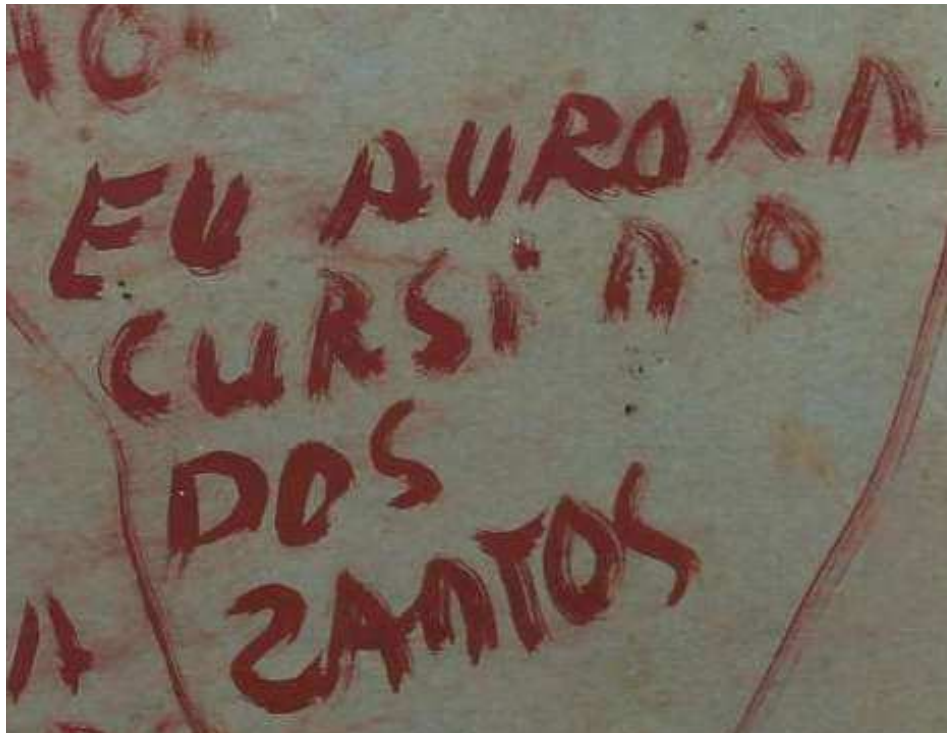 EU AURORA
CURSiNO
DOS
SANTOS